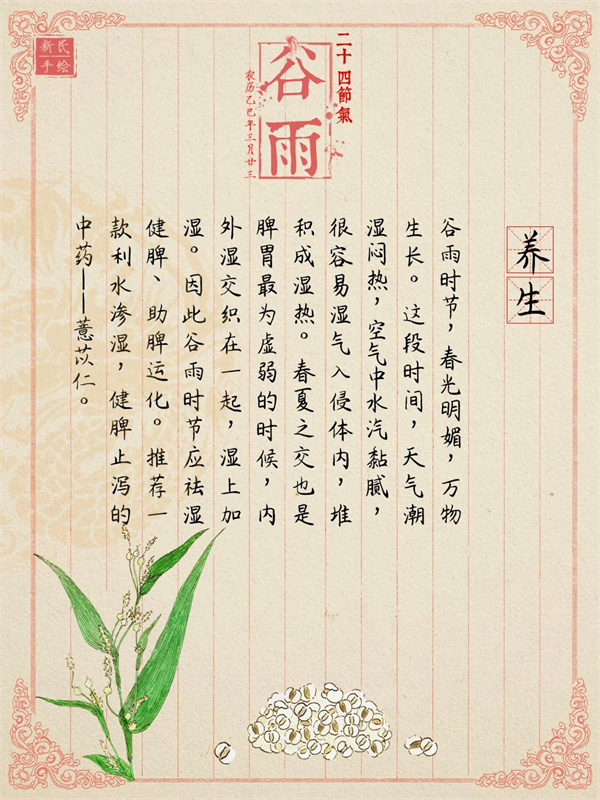 二十四節氣
谷雨
农历乙巳年三月廿三
新民
手绘
养生
谷雨时节，春光明媚，万物
生长。这段时间，天气潮
湿闷热，空气中水汽黏腻，
很容易湿气入侵体内，堆
积成湿热。春夏之交也是
脾胃最为虚弱的时候，内
外湿交织在一起，湿上加
湿。因此谷雨时节应祛湿
健脾、助脾运化。推荐一
款利水渗湿，健脾止泻的
中药——薏苡仁。